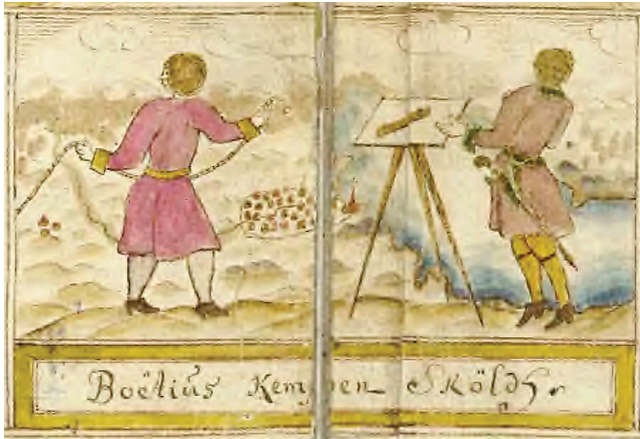 Boëtius Kempen Sköldh.